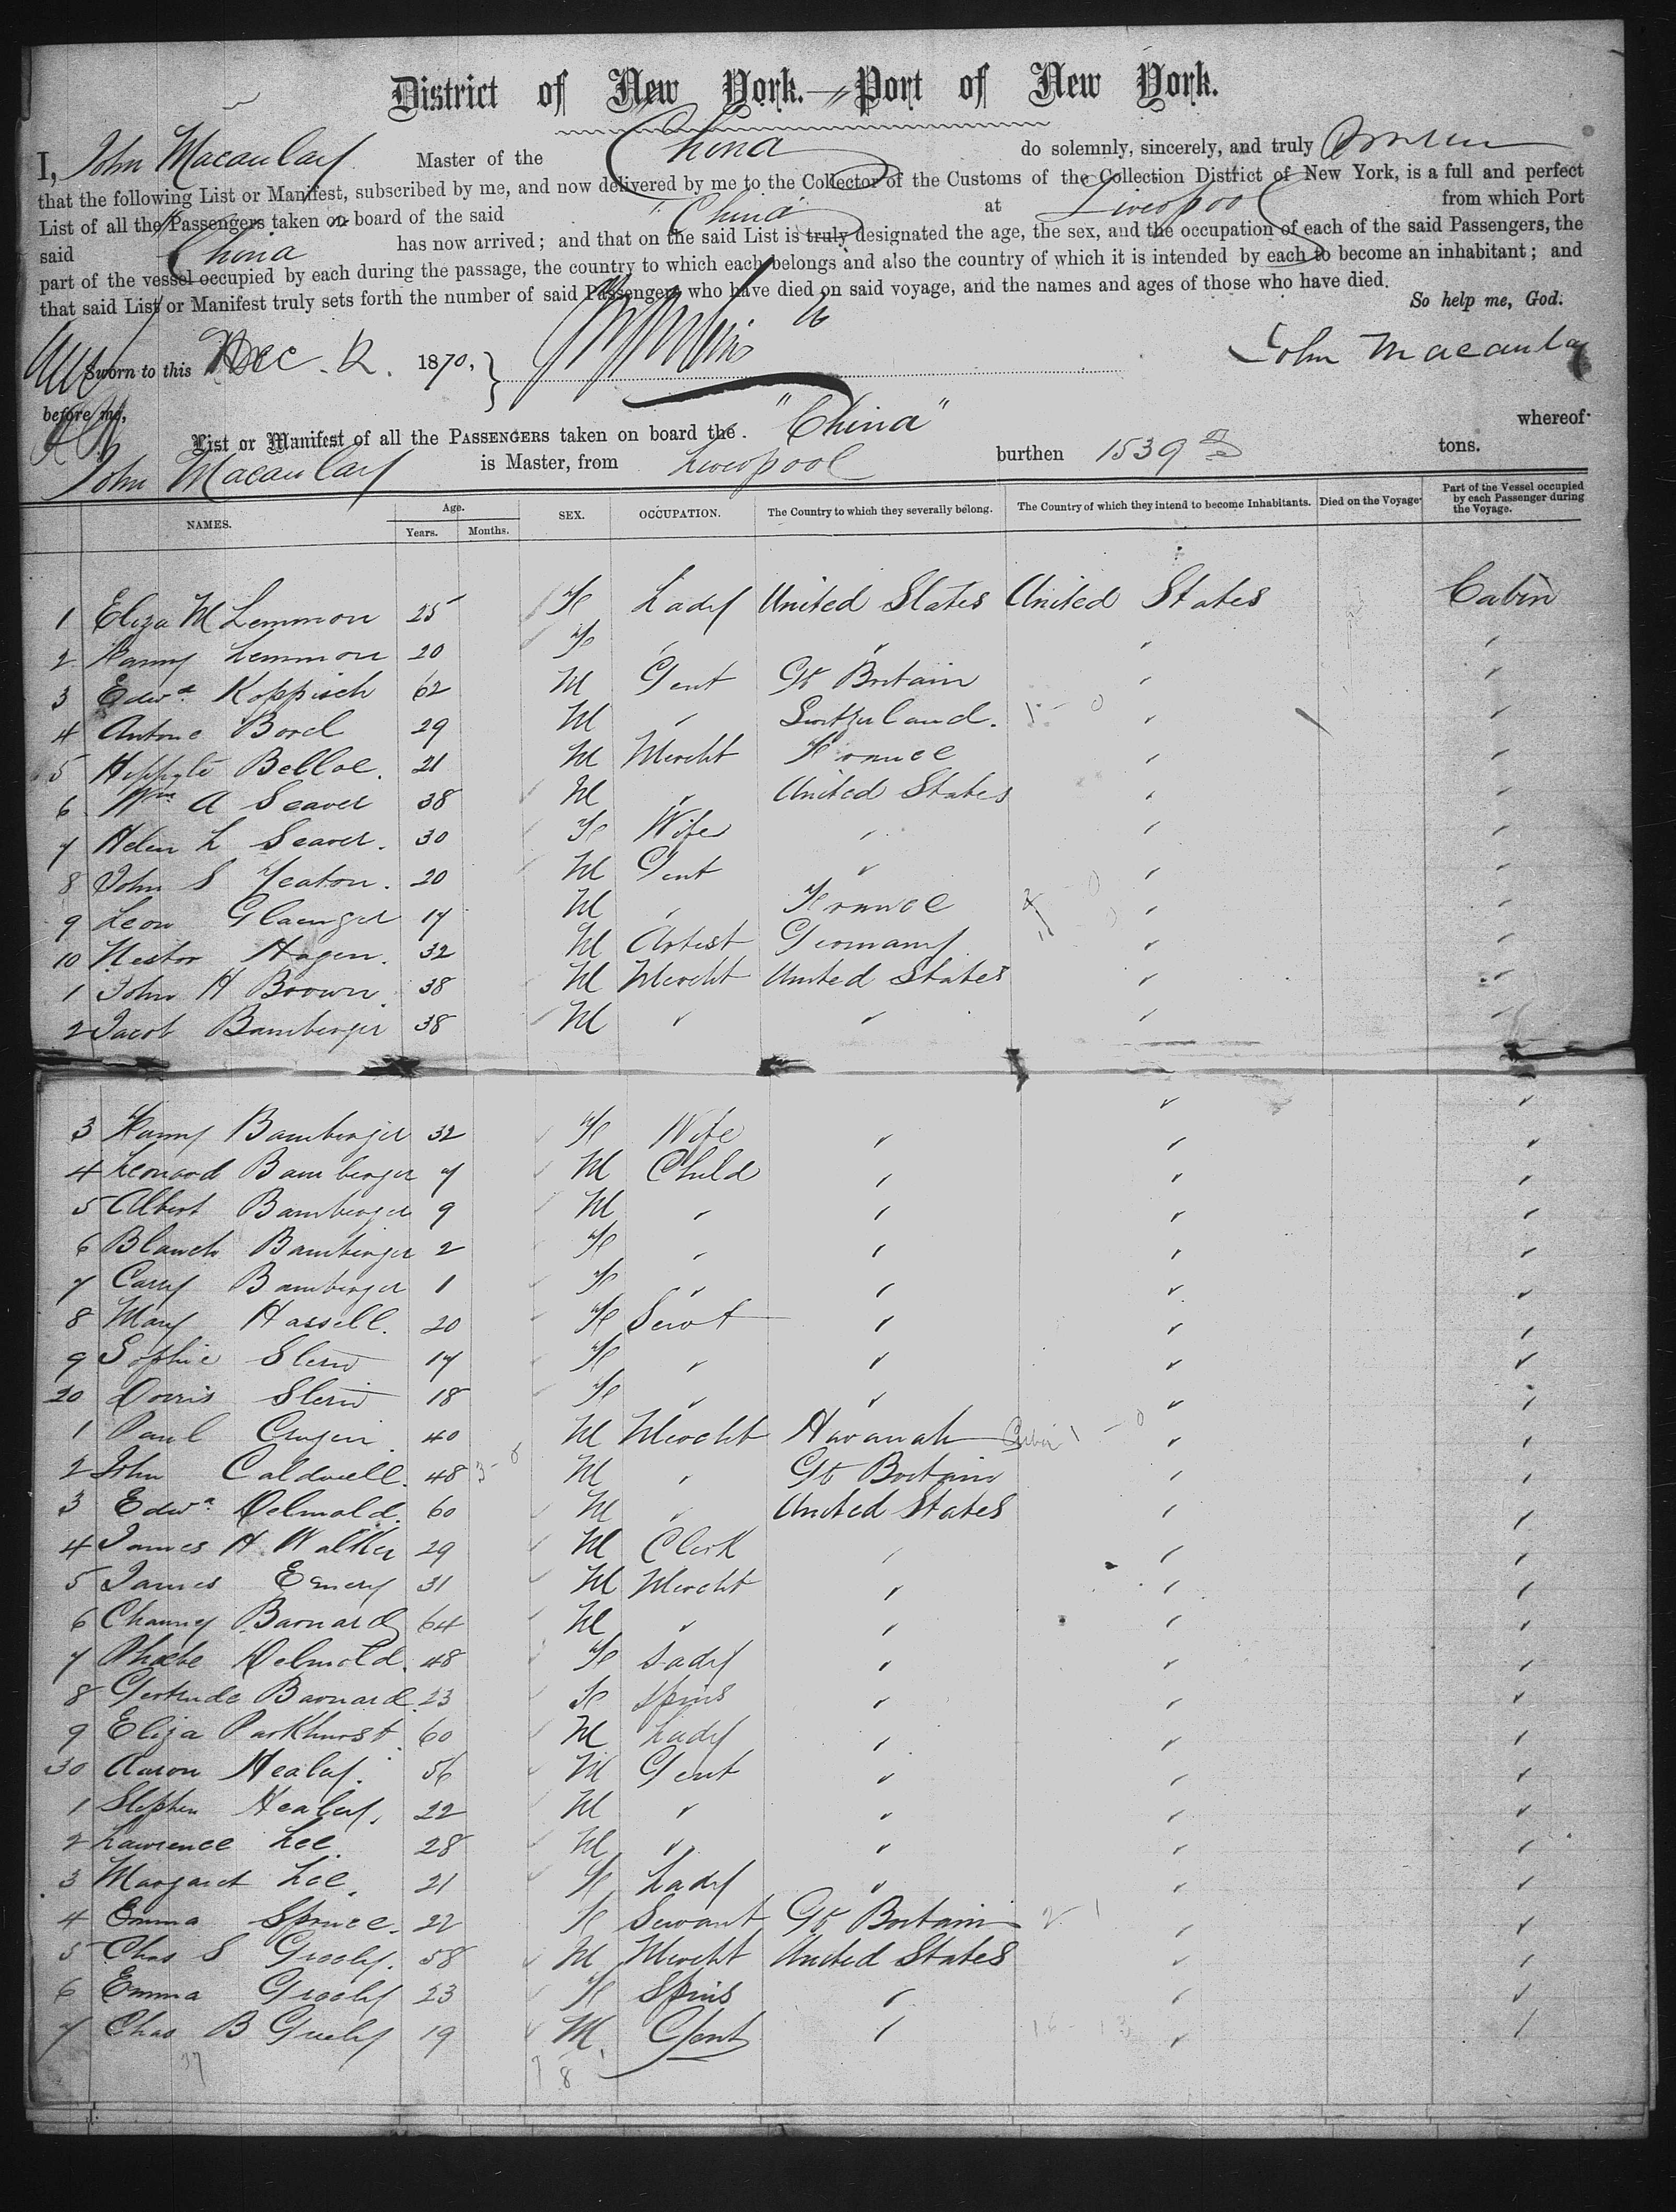 District of New York.—Port of New York.
I, John Macaulay Master of the China do solemnly, sincerely, and truly
that the following List or Manifest, subscribed by me, and now delivered by me to the Collector of the Customs of the Collection District of New York, is a full and perfect
List of all the Passengers taken on board of the said China at Liverpool from which Port
said China has now arrived; and that on the said List is truly designated the age, the sex, and the occupation of each of the said Passengers, the
part of the vessel occupied by each during the passage, the country to which each belongs and also the country of which it is intended by each to become an inhabitant; and
that said List or Manifest truly sets forth the number of said Passengers who have died on said voyage, and the names and ages of those who have died.
So help me, God.
Sworn to this Dec. 12. 1870, } John Macaulay
before me,
List or Manifest of all the PASSENGERS taken on board the "China" whereof
John Macaulay is Master, from Liverpool burthen 1539 tons.
NAMES. Age. Years. Months. SEX. OCCUPATION. The Country to which they severally belong. The Country of which they intend to become Inhabitants. Died on the Voyage. Part of the Vessel occupied by each Passenger during the Voyage.
1 Eliza M Lemmon 25 F Lady United States United States Cabin
2 Fanny Lemmon 20 F " " " "
3 Edwd Koppisch 62 M Gent Gt Britain " "
4 Antone Borel 29 M " Switzerland. " "
5 Hippolyte Belloc. 21 M Mercht France " "
6 Wm A Seaver 38 M " United States " "
7 Helen L Seaver. 30 F Wife " " "
8 John S Yeaton. 20 M Gent " " "
9 Leon Glaenger 17 M " France " "
10 Nestor Hagen. 32 M Artist Germany " "
1 John H Brown. 38 M Mercht United States " "
2 Jacob Bamberger 38 M " " " "
3 Fanny Bamberger 32 F Wife " " "
4 Leonard Bamberger 7 M Child " " "
5 Albert Bamberger 9 M " " " "
6 Blanch Bamberger 2 F " " " "
7 Carry Bamberger 1 F " " " "
8 Mary Hassell. 20 F Servt " " "
9 Sophie Stern 17 F " " " "
20 Dorris Stern 18 F " " " "
1 Paul 40 M Mercht Havanah Cuba " "
2 John Caldwell. 48 M " Gt Britain " "
3 Edwd Delmold. 60 M " United States " "
4 James H Walker 29 M Clerk " " "
5 James Emery 31 M Mercht " " "
6 Chauncy Barnard 64 M " " " "
7 Phoebe Delmold. 48 F Lady " " "
8 Gertrude Barnard. 23 F Spins " " "
9 Eliza Parkhurst 60 M Lady " " "
30 Aaron Healy. 56 M Gent " " "
1 Stephen Healy. 22 M " " " "
2 Lawrence Lee. 28 M " " " "
3 Margaret Lee. 21 F Lady " " "
4 Emma Spruce. 22 F Servant Gt Britain " "
5 Chas S Grooly. 58 M Mercht United States " "
6 Emma Grooly 23 F Spins " " "
7 Chas B Greely 19 M Gent " " "
37 8